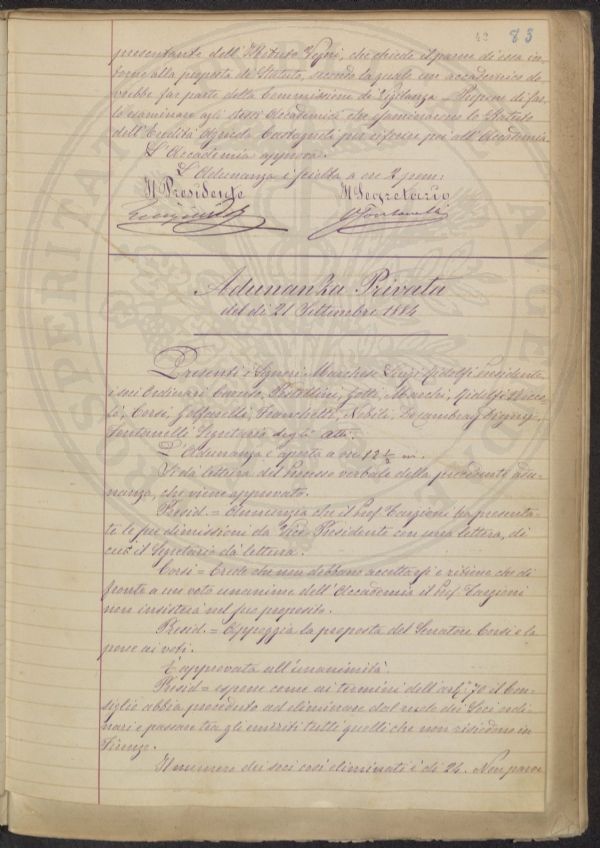 42 83
presentante dell'Istituto Vegni, che chiede il parere di essa in-
torno alla proposta di Statuto, secondo la quale un accademico do
vrebbe far parte della Commissione di Vigilanza - Propone di far-
lo esaminare agli stessi Accademici che esaminarono lo Statuto
dell'Eredità Agraria Castagneti per riferire poi all'Accademia.
L'Accademia approva.
L'Adunanza è sciolta a ore 2 pom:
Il Presidente Il Segretario
Fontanelli
Adunanza Privata
del dì 21 Settembre 1884
Presenti i Signori: Marchese Luigi Ridolfi Presidente
i soci Ordinari Caruso, Pestellini, Gotti, Marchi, Ridolfi Nicco-
lò, Corsi, Goffarelli, Franchetti, Nobili, De Cambray Digny,
Fontanelli Segretario degli Atti.
L'Adunanza è aperta a ore 12 ½ m.
Si dà lettura del Processo verbale della precedente adu-
nanza, che viene approvato.
Presid. = Annunzia che il Prof Targioni ha presenta-
te le sue dimissioni da Vice Presidente con una lettera, di
cui il Segretario dà lettura.
Corsi = Crede che non debbano accettarsi e ritiene che di
fronte a un voto unanime dell'Accademia il Prof Targioni
non insisterà nel suo proposito.
Presid. = Appoggia la proposta del Senatore Corsi e la
pone ai voti.
È approvata all'unanimità.
Presid = espone come ai termini dell'artº 70 il Con-
siglio abbia proceduto ad eliminare dal ruolo dei Soci ordi-
nari e passare tra gli emeriti tutti quelli che non risiedono in
Firenze.
Il numero dei soci così eliminati è di 24. Non pare